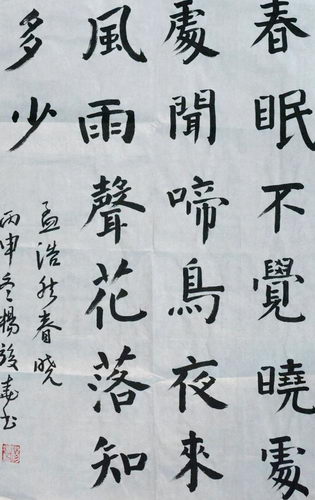 春眠不覺曉處
處聞啼鳥夜來
風雨聲花落知
多少
孟浩然春曉
丙申冬楊